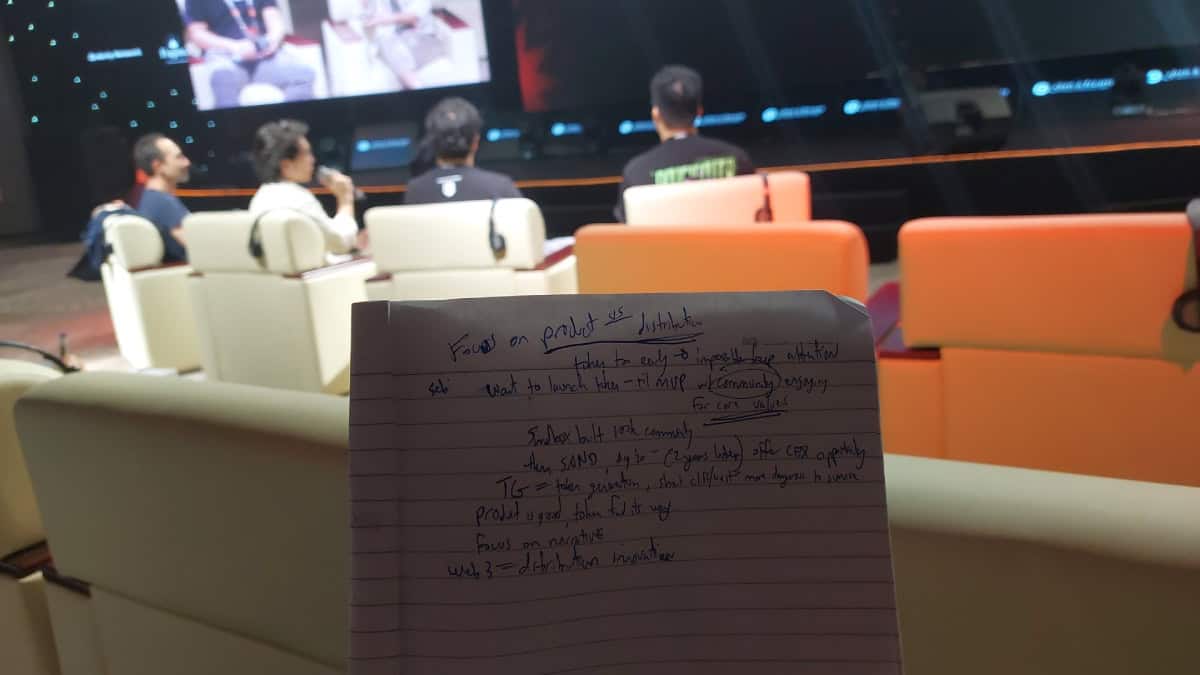 Focus on product vs distribution
token to early → impossible keep attention
Seb: want to launch token - til MVP w/ community engaging
for core values
Sandbox built 100k community
then SAND, (2 years later) offer CEX opportunity
TG = token generation, short cliff/vest more dangerous to survive
Product is good, token find its way
Focus on narrative
web 3 = distribution innovation